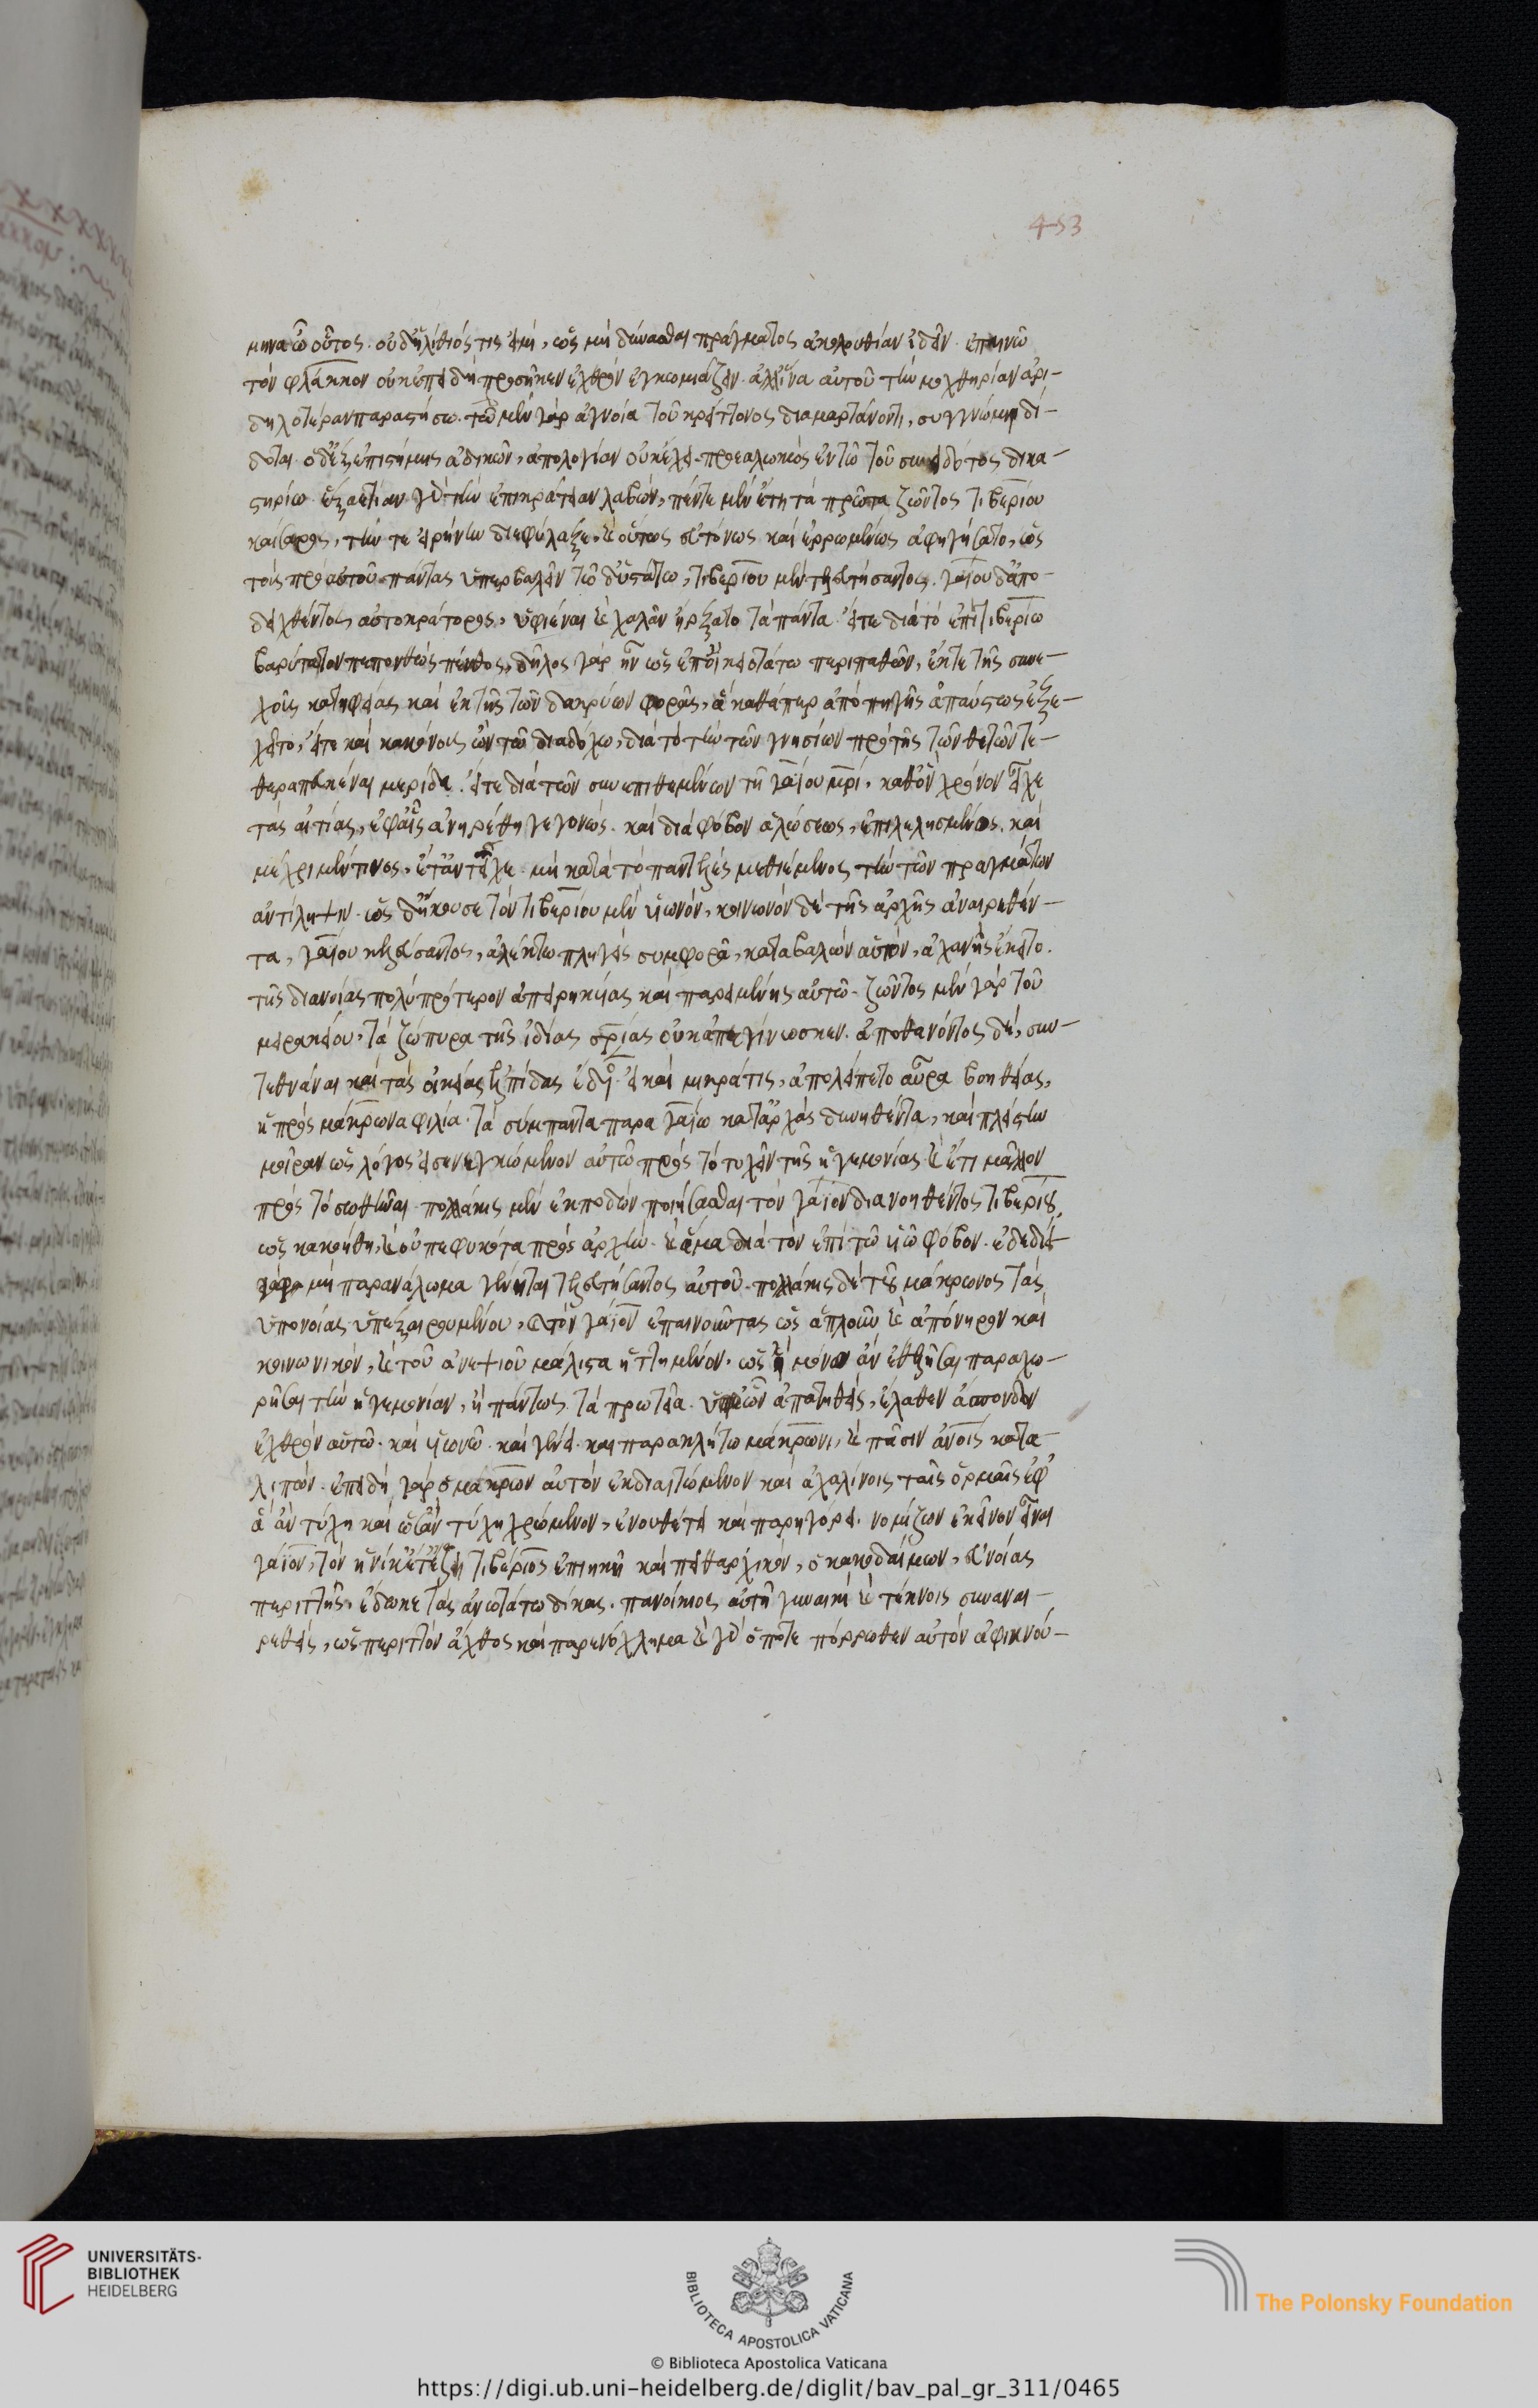 453
μηνα ὦ οὗτος. οὐδ' ἠλίθιός τις εἰμὶ, ὡς μὴ δύνασθαι πράγματος ἀκολουθίαν ἰδεῖν. ἐπαινῶ
τὸν φλάκκον οὐκ ἐπειδὴ προσῆκεν ἐχθρὸν ἐγκωμιάζειν. ἀλλ' ἵνα αὐτοῦ τὴν μοχθηρίαν ἀρι-
δηλοτέραν παραστήσω. τῷ μὲν γὰρ ἀγνοία τοῦ κρείττονος διαμαρτάνοντι, συγγνώμη δί-
δοται. ὁ δ' ἐξ ἐπιστήμης ἀδικῶν, ἀπολογίαν οὐκ ἔχει. προεαλωκὼς ἐν τῷ τοῦ συνειδότος δικα-
στηρίω. ἑξαετίαν γὰρ τὴν ἐπικράτειαν λαβὼν, πέντε μὲν ἔτη τὰ πρῶτα ζῶντος τιβερίου
καίσαρος, τήν τε εἰρήνην διεφύλαξε, καὶ οὕτως εὐτόνως καὶ ἐρρωμένως ἀφηγήσατο, ὡς
τοὺς πρὸ αὐτοῦ πάντας ὑπερβαλεῖν τῷ δ' ὑστάτω, τιβερίου μὲν τελευτήσαντος. γαΐου δ' ἀπο-
δειχθέντος αὐτοκράτορος, ὑφιέναι καὶ χαλᾶν ἤρξατο τὰ πάντα. εἴτε διὰ τὸ ἐπὶ τιβερίω
βαρύτατον πεπονθὼς πένθος, δῆλος γὰρ ἦν ὡς ἐπ' οἰκειοτάτω περιπαθῶν, ἔκ τε τῆς συνε-
χοῦς κατηφείας καὶ ἐκ τῆς τῶν δακρύων φορᾶς, ἃ καθάπερ ἀπὸ πηγῆς ἀπαύστως ἐξε-
χεῖτο, εἴτε καὶ κακόνους ὢν τῷ διαδόχω, διὰ τὸ τὴν τῶν γνησίων πρὸ τῆς τῶν θετῶν τε-
θεραπευκέναι μερίδα. εἴτε διὰ τῶν συνεπιθεμένων τῇ γαΐου μρί, καθ' ὃν χρόνον εἶχε
τὰς αἰτίας, ἐφ' αἷς ἀνῃρέθη γεγονώς. καὶ διὰ φόβον ἁλώσεως, ἐπιλελησμένος. καὶ
μέχρι μέν τινος, ἔτ' ἀντεῖχε. μὴ κατὰ τὸ παντελὲς μεθιέμενος τὴν τῶν πραγμάτων
ἀντίληψιν. ὡς δ' ἤκουσε τὸν τιβερίου μὲν υἱωνὸν, κοινωνὸν δὲ τῆς ἀρχῆς ἀναιρεθέν-
τα, γαΐου κελεύσαντος, ἀλέκτω πληγεὶς συμφορᾷ, καταβαλὼν αὑτὸν, ἀχανὴς ἔκειτο.
τῆς διανοίας πολὺ πρότερον ἀπειρηκυίας καὶ παρειμένης αὐτῷ. ζῶντος μὲν γὰρ τοῦ
μειρακίου, τὰ ζώπυρα τῆς ἰδίας σρίας οὐκ ἀπεγίνωσκεν. ἀποθανόντος δὲ, συν-
τεθνάναι καὶ τὰς οἰκείας ἐλπίδας ἐδόκει. εἰ καὶ μικρά τις, ἀπολείπετο αὔρα βοηθείας,
ἡ πρὸς μάκρωνα φιλία. τὰ σύμπαντα παρὰ γαΐω κατ' ἀρχὰς δυνηθέντα, καὶ πλείστην
μοῖραν ὡς λόγος εἰσενεγκάμενον αὐτῷ πρὸς τὸ τυχεῖν τῆς ἡγεμονίας καὶ ἔτι μᾶλλον
πρὸς τὸ σωθῆναι. πολλάκις μὲν ἐκποδὼν ποιήσασθαι τὸν γάϊον διανοηθέντος τιβερίου,
ὡς κακοήθη, καὶ οὐ πεφυκότα πρὸς ἀρχήν. καὶ ἅμα διὰ τὸν ἐπὶ τῷ υἱῷ φόβον. ἐδεδίει
γὰρ μὴ παρανάλωμα γένηται τελευτήσαντος αὐτοῦ. πολλάκις δὲ τοῦ μάκρωνος τὰς
ὑπονοίας ὑπεξαιρουμένου, καὶ τὸν γάϊον ἐπαινοῦντας ὡς ἁπλοῦν καὶ ἀπόνηρον καὶ
κοινωνικὸν, καὶ τοῦ ἀνεψιοῦ μάλιστα ἡττημένον. ὡς ἢ μόνω ἂν ἐθελῆσαι παραχω-
ρῆσαι τὴν ἡγεμονίαν, ἢ πάντως τὰ πρωτεῖα. ὑφ' ὧν ἀπατηθεὶς, ἔλαθεν ἄσπονδον
ἐχθρὸν αὑτῷ. καὶ υἱωνῷ. καὶ γένει. καὶ παρακλήτω μάκρωνι, καὶ πᾶσιν ἀνοις κατα-
λιπών. ἐπειδὴ γὰρ ὁ μάκρων αὐτὸν ἐκδιαιτώμενον καὶ ἀχαλίνοις ταῖς ὁρμαῖς ἐφ'
ἃ ἂν τύχη καὶ ὡς ἂν τύχη χρώμενον, ἐνουθέτει καὶ παρηγόρει. νομίζων ἐκεῖνον εἶναι
γάϊον, τὸν ἡνίκ' ἔτ' ἔζη τιβέριος ἐπιεικῆ καὶ πειθαρχικὸν, ὁ κακοδαίμων, εὐνοίας
περιττῆς, ἔδωκε τὰς ἀνωτάτω δίκας. πανοίκιος αὐτῇ γυναικὶ καὶ τέκνοις συναναι-
ρεθεὶς, ὡς περιττὸν ἄχθος καὶ παρενόχλημα καὶ γὰρ ὁπότε πόρρωθεν αὐτὸν ἀφικνού-
UNIVERSITÄTS-
BIBLIOTHEK
HEIDELBERG
BIBLIOTECA APOSTOLICA VATICANA
The Polonsky Foundation
© Biblioteca Apostolica Vaticana
https://digi.ub.uni-heidelberg.de/diglit/bav_pal_gr_311/0465